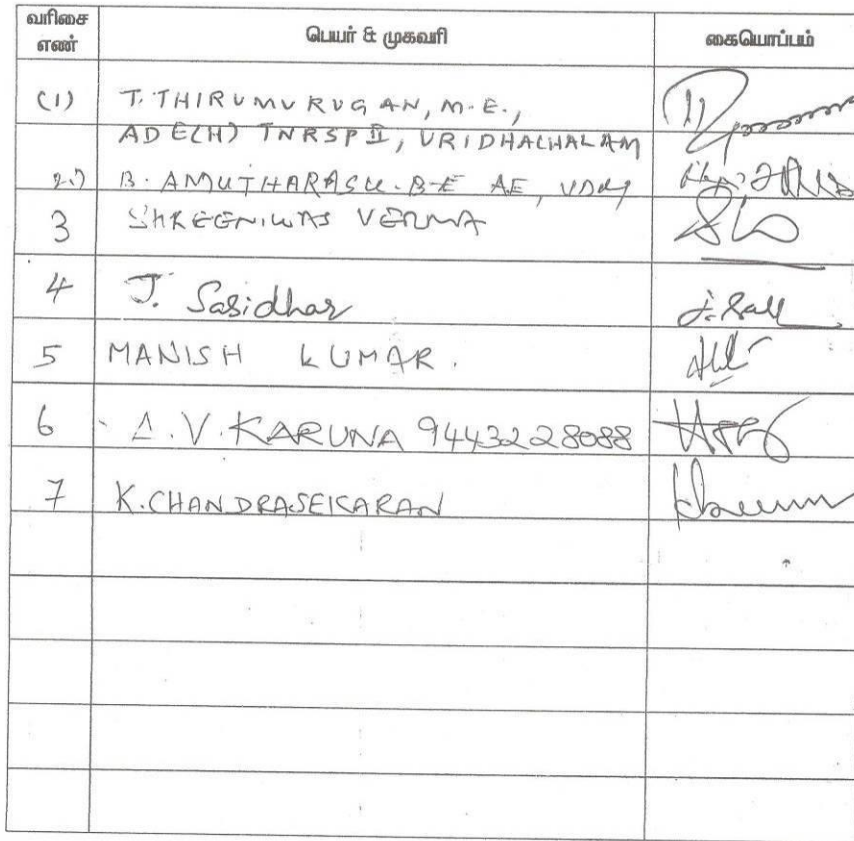 வரிசை எண் பெயர் & முகவரி கையொப்பம்
(1) T. THIRUMURUGAN, M.E.,
ADE(H) TNRSP II, VRIDHACHALAM
2.) B. AMUTHARASU. B-E AE, VDM
3 SHREENIWAS VERMA
4 J. Sasidhar
5 MANISH KUMAR.
6 A.V. KARUNA 9443228088
7 K.CHANDRASEKARAN